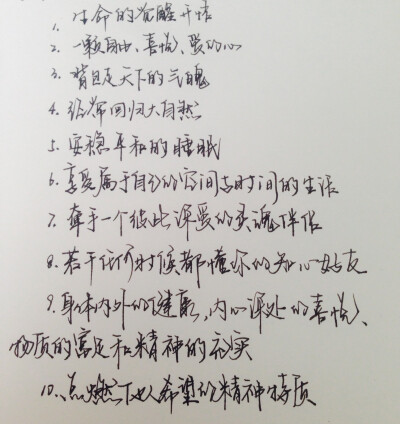 1. 生命的觉醒开悟
2. 一颗自由、喜悦、爱的心
3. 背包走天下的气魄
4. 经常回归大自然
5. 安稳平和的睡眠
6. 享受属于自己的空间与时间的生活
7. 牵手一个彼此深爱的灵魂伴侣
8. 若干任何时候都懂你的知心好友
9. 身体内外的健康,内心深处的喜悦、
物质的富足和精神的充实
10. 点燃他人希望的精神特质